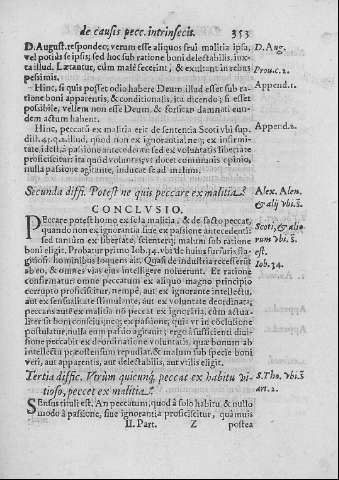 de causis pecc. intrinsecis. 353
D. August. respondeo; verum esse aliquos seui malitia ipsa, D. Aug.
vel potius se ipsis; sed hoc sub ratione boni delectabilis, iux-
ta illud. Lætantur, cùm malè fecerint, & exultant in rebus Prou. c. 2.
pessimis.
Hinc, si quis posset odio habere Deum, illud esset sub ra- Append. 1.
tione boni apparentis, & conditionalis, ita dicendo; si esset
possibile, vellem non esse Deum, & forsican damnati eun-
dem actum habent.
Hinc, peccatũ ex malitia erit de sententia Scoti vbi sup. Append. 2.
dist. 43. q. 2. illud, quod non ex ignorantia, neq; ex infirmi-
tate, idest, à passione antecedente, sed ex voluntatis libertate
proficiscitur, ita quòd voluntas, vt docet communis opinio,
nulla passione agitante, inducat se ad malum.
Secunda diffi. Potest ne quis peccare ex malitia? Alex. Alen.
& alij vbi. s̃.
CONCLVSIO.
PEccare potest homo ex sola malitia, & de facto peccat, Scoti, & alio
quando non ex ignorantia siue ex passione antecedenti: rum vbi. s̃.
sed tantùm ex libertate, scienterq; malum sub ratione est.
boni eligit. Probatur primo Iob. 34. vbi de huiusfurfuris fla- Iob. 34.
gitiosis hominibus loquens ait. Quasi de industria recesserũt
ab eo, & omnes vias eius intelligere noluerunt. Et ratione
confirmatur; omne peccatum ex aliquo magno principio
corrupto proficiscitur, nempè, aut ex ignorante intellectu,
aut ex sensualitate stimulante, aut ex voluntate deordinata;
peccans autẽ ex malitia nõ peccat ex ignorãtia, cùm actua-
liter sit boni conscius; neq; ex passione; quia vt in cõclusione
postulatur, nulla eum passio agitauit; ergo à sufficienti diuisi-
one peccabit ex deordinatione voluntatis, quæ bonum ab
intellectu præostensum repudiat: & malum sub specie boni
veri, aut apparentis, aut delectabilis, aut vtilis eligit.
Tertia diffic. Vtrùm quicunq; peccat ex habitu vi- S. Tho. vbi. s̃
tioso, peccet ex malitia? art. 2.
SEnsus tituli est. An peccatum, quod à solo habitu & nullo
modo à passione, siue ignorantia proficiscitur, quãuis
II. Part. Z postea